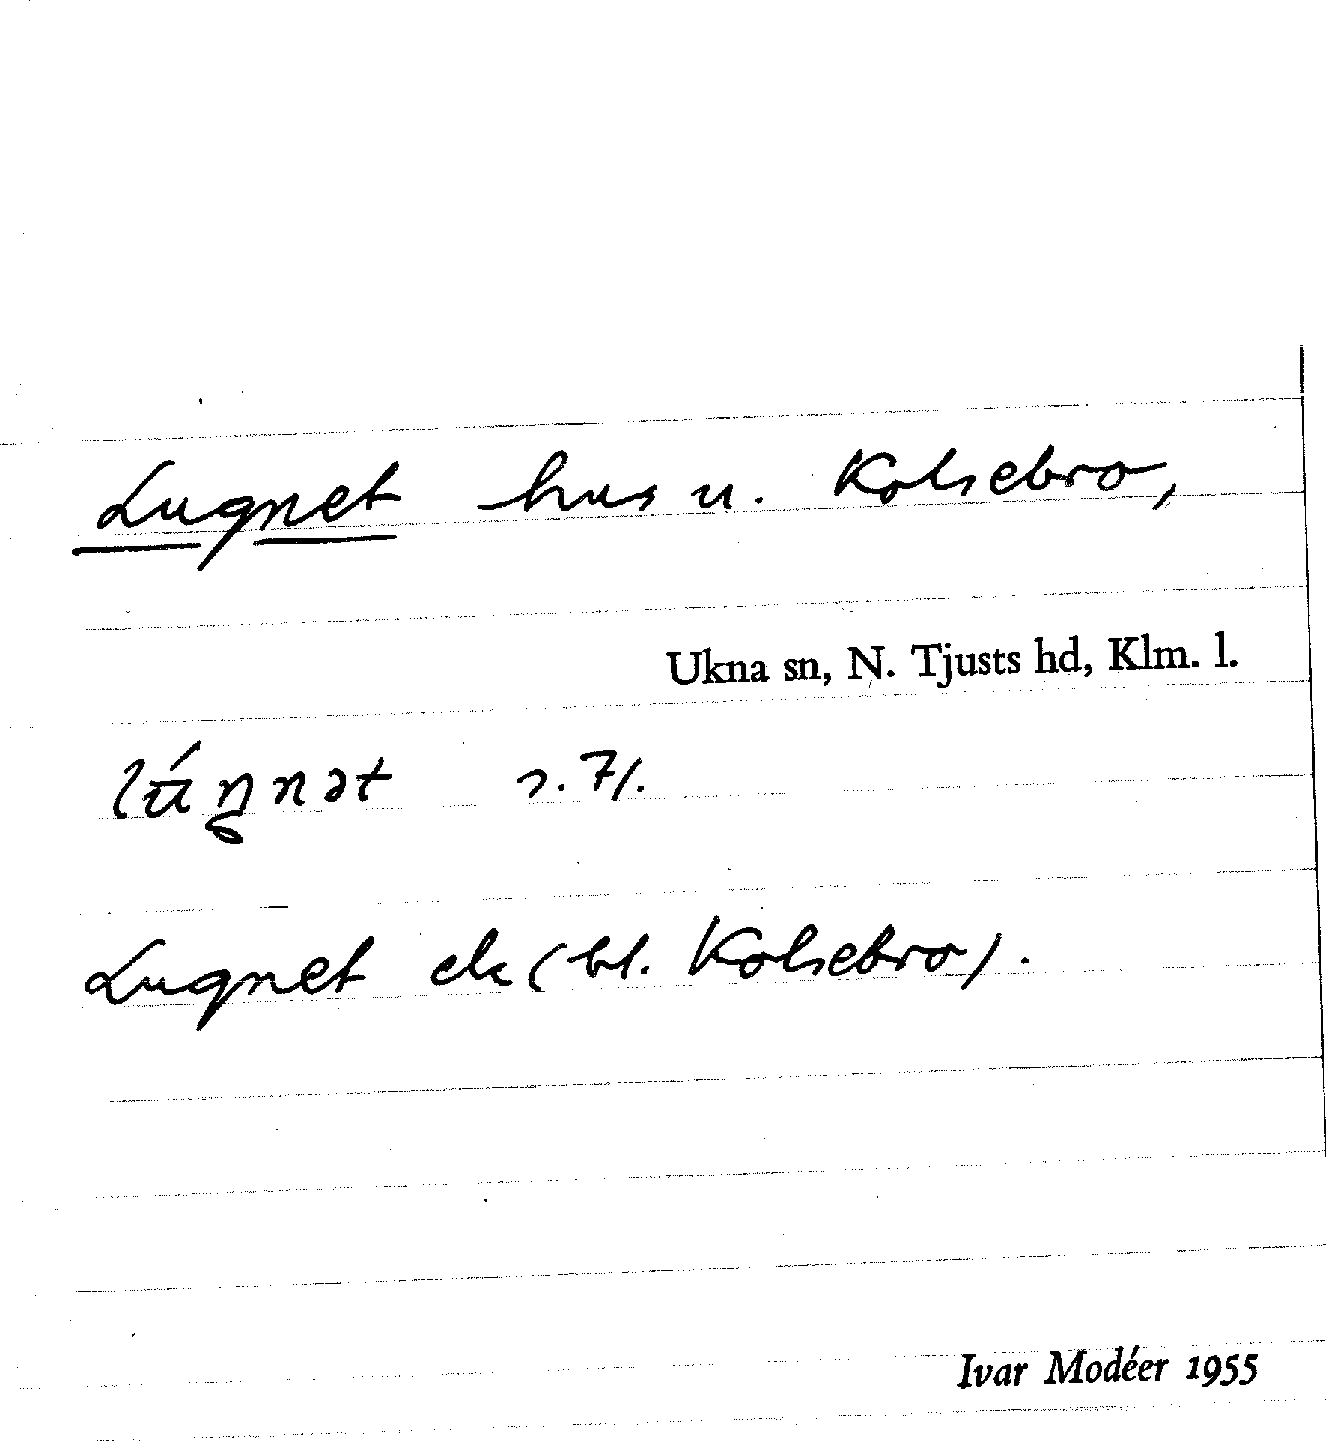 Lugnet hus u. Kolsebro,
Ukna sn, N. Tjusts hd, Klm. l.
Lugnet ek (bl. Kolsebro).
Ivar Modéer 1955